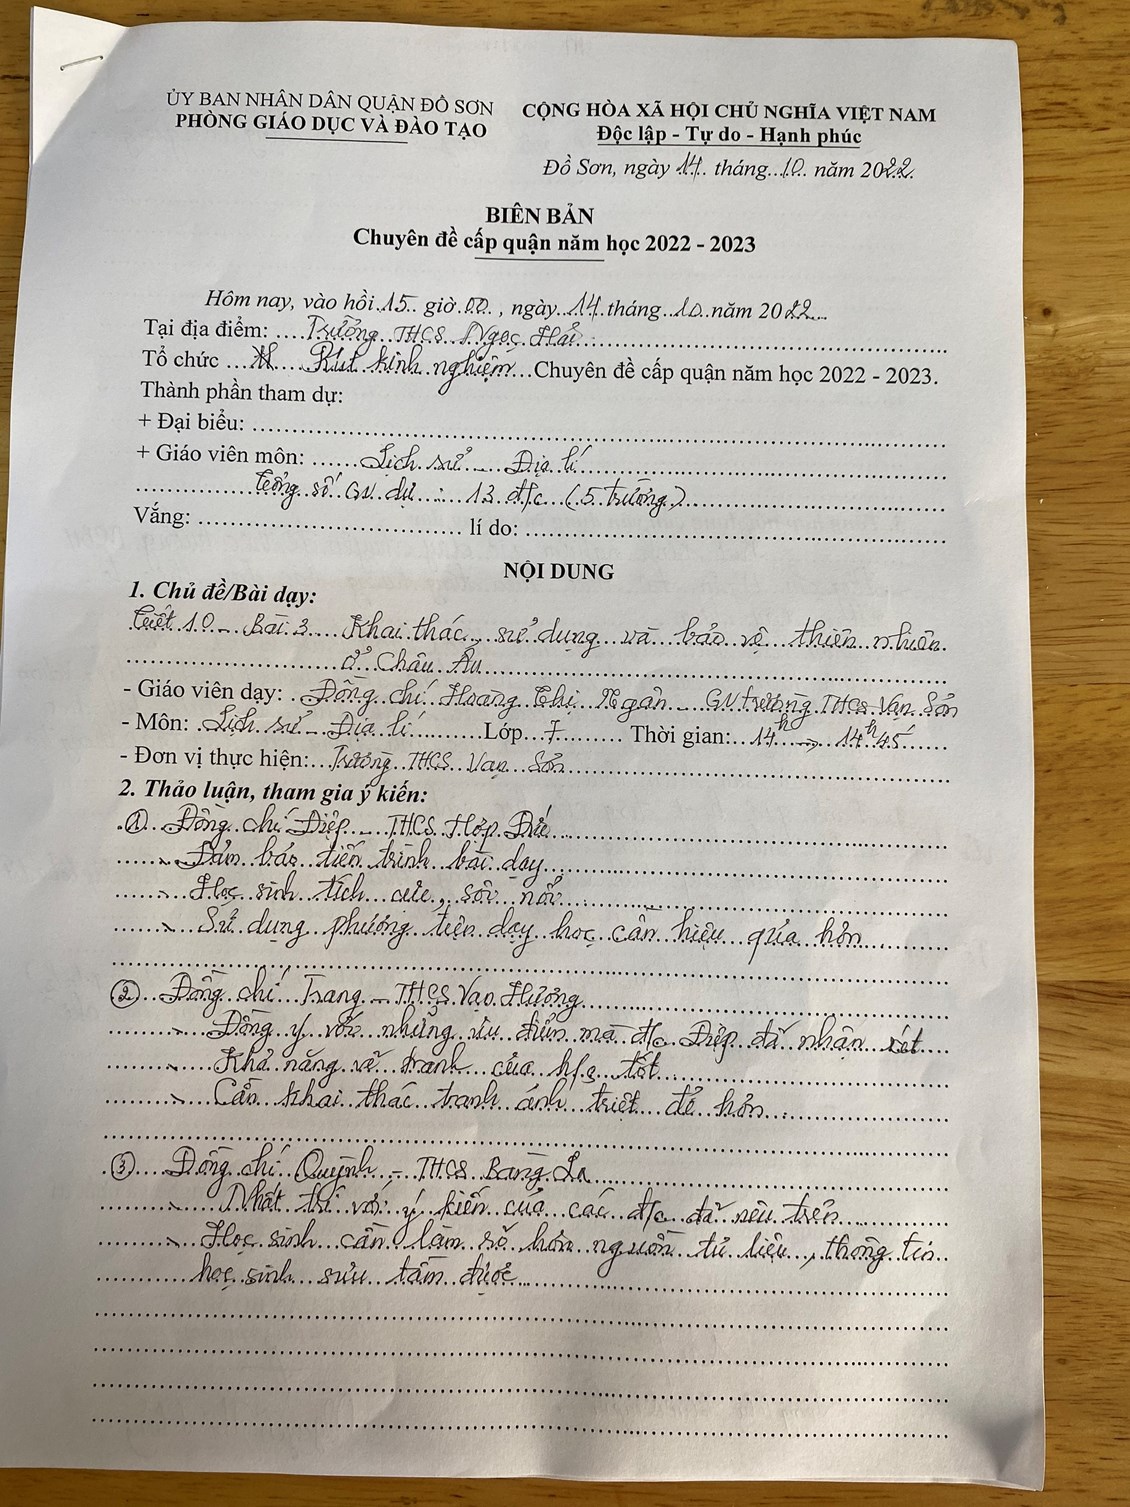 ỦY BAN NHÂN DÂN QUẬN ĐỒ SƠN
PHÒNG GIÁO DỤC VÀ ĐÀO TẠO
CỘNG HÒA XÃ HỘI CHỦ NGHĨA VIỆT NAM
Độc lập - Tự do - Hạnh phúc
Đồ Sơn, ngày 14 tháng 10 năm 2022
BIÊN BẢN
Chuyên đề cấp quận năm học 2022 - 2023
Hôm nay, vào hồi 15 giờ 00, ngày 14 tháng 10 năm 2022
Tại địa điểm: Trường THCS Ngọc Hải
Tổ chức Rút kinh nghiệm Chuyên đề cấp quận năm học 2022 - 2023.
Thành phần tham dự:
+ Đại biểu:
+ Giáo viên môn: Lịch sử - Địa lí
Tổng số GV dự : 13 đ/c (5 trường)
Vắng: lí do:
NỘI DUNG
1. Chủ đề/Bài dạy:
Tiết 10 - Bài 3 Khai thác, sử dụng và bảo vệ thiên nhiên
ở Châu Âu
- Giáo viên dạy: Đồng chí Hoàng Thị Ngân - GV trường THCS Vạn Sơn
- Môn: Lịch sử - Địa lí Lớp 7 Thời gian: 14h → 14h45'
- Đơn vị thực hiện: Trường THCS Vạn Sơn
2. Thảo luận, tham gia ý kiến:
① Đồng chí Điệp - THCS Hợp Đức
- Đảm bảo tiến trình bài dạy
- Học sinh tích cực, sôi nổi
- Sử dụng phương tiện dạy học cần hiệu qủa hơn
② Đồng chí Trang - THCS Vạn Hương
- Đồng ý với những ưu điểm mà đ/c Điệp đã nhận xét
- Khả năng vẽ tranh của h/s tốt
- Cần khai thác tranh ảnh triệt để hơn
③ Đồng chí Quỳnh - THCS Bàng La
- Nhất trí với ý kiến của các đ/c đã nêu trên
- Học sinh cần làm rõ hơn nguồn tư liệu, thông tin
học sinh sưu tầm được